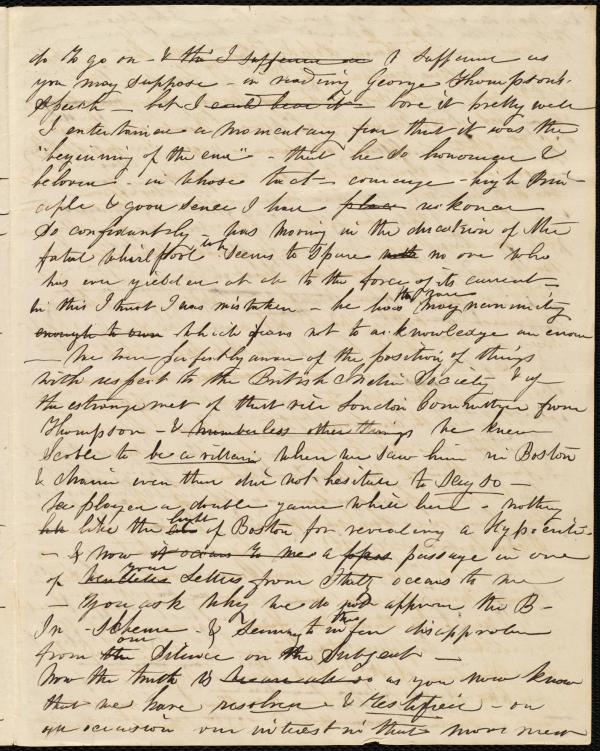 do to go on - & tho' I suffered as I suffered as
you may suppose - in reading George Thompson's
Speech - but I could bear it bore it pretty well
I entertained a momentary fear that it was the
"beginning of the end" - that he so honoured &
beloved - in whose tact - courage - high prin-
ciple & good sense I have placed reckoned
so confidently - was moving in the direction of the
fatal whirlpool wh seems to spare no one who
has ever yielded at all to the force of its current -
in this I trust I was mistaken - he has that rare magnanimity
enough to own which fears not to acknowledge an error
- We were perfectly aware of the position of things
with respect to the British India Society & of
the estrangement of that vile London Committee from
Thompson - & numberless other things we knew
Scoble to be a villain when we saw him in Boston
& Maria even then did not hesitate to say so -
He played a double game while here - nothing
like the light of Boston for revealing a Hypocrite
- & now it occurs to me a passage in one
of your Letters from Italy occurs to me
- You ask why we do not approve the B-
In - Scheme - & seem to infer the disapproval
from our Silence on the Subject -
Now the truth is as you now know
that we have resolved & testified - on
our interest in that move ment